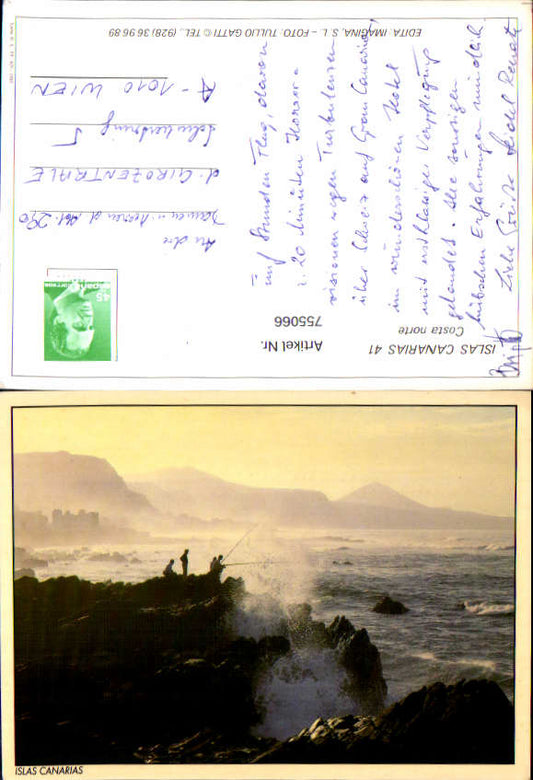 ISLAS CANARIAS 41
Costa norte
Artikel Nr.
755066
EDITA. IMAGINA, S. L. – FOTO. TULLIO GATTI © TEL.. (928) 36 96 89
45
An die
Damen u. Herren d. Abt. 290
d. GIROZENTRALE
Schubertring 5
A - 1010 WIEN
fünf Stunden Flug, davon
20 Minuten Horror-
visionen wegen Turbulenzen
über Schweiz auf Gran Canaria
im wunderschönen Hotel
mit erstklassiger Verpflegung
gelandet. Alle sonstigen
hübschen Erfahrungen mündlich.
Liebe Grüße Renate
ISLAS CANARIAS